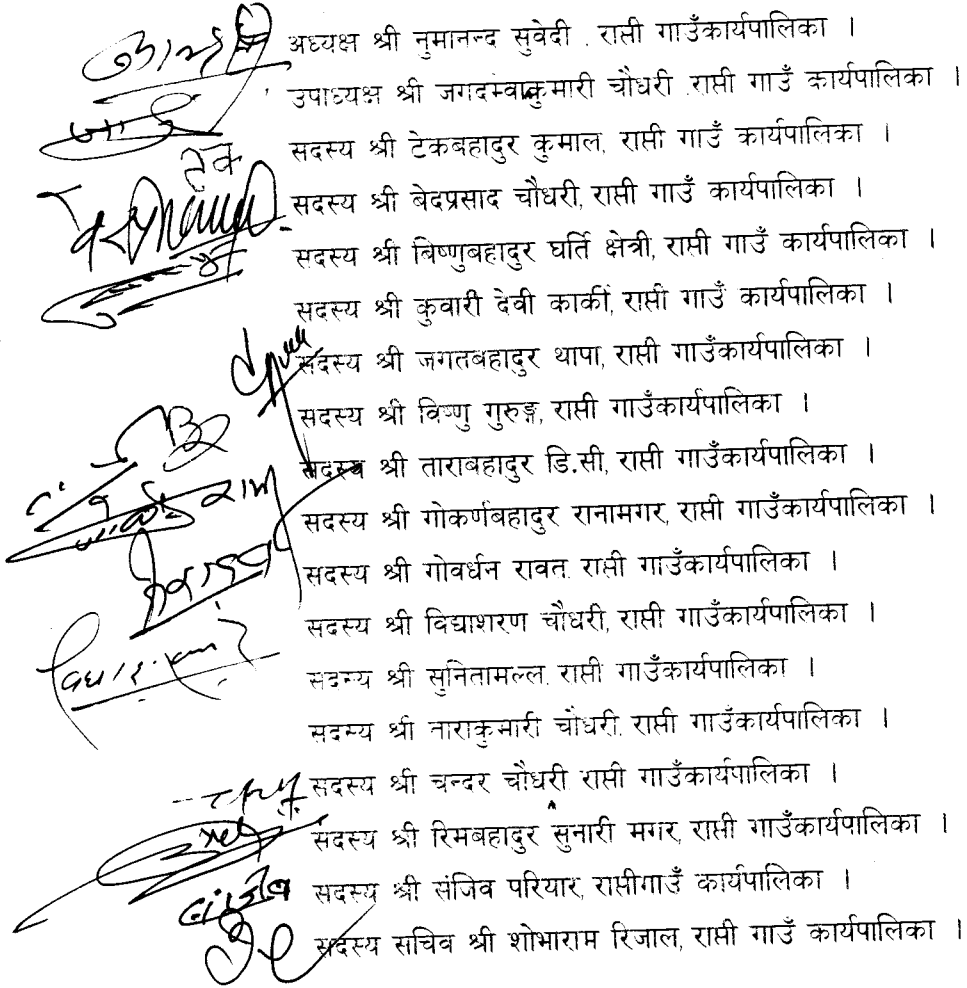 अध्यक्ष श्री नुमानन्द सुवेदी . राप्ती गाउँकार्यपालिका ।
उपाध्यक्ष श्री जगदम्वाकुमारी चौधरी राप्ती गाउँ कार्यपालिका ।
सदस्य श्री टेकबहादुर कुमाल, राप्ती गाउँ कार्यपालिका ।
टेक
सदस्य श्री बेदप्रसाद चौधरी, राप्ती गाउँ कार्यपालिका ।
सदस्य श्री बिष्णुबहादुर घर्ति क्षेत्री, राप्ती गाउँ कार्यपालिका ।
सदस्य श्री कुवारी देवी कार्की, राप्ती गाउँ कार्यपालिका ।
सदस्य श्री जगतबहादुर थापा, राप्ती गाउँकार्यपालिका ।
सदस्य श्री विष्णु गुरुङ्ग, राप्ती गाउँकार्यपालिका ।
सदस्य श्री ताराबहादुर डि.सी, राप्ती गाउँकार्यपालिका ।
सदस्य श्री गोकर्णबहादुर रानामगर, राप्ती गाउँकार्यपालिका ।
सदस्य श्री गोवर्धन रावत, राप्ती गाउँकार्यपालिका ।
सदस्य श्री विद्याशरण चौधरी, राप्ती गाउँकार्यपालिका ।
सदस्य श्री सुनितामल्ल, राप्ती गाउँकार्यपालिका ।
सदस्य श्री ताराकुमारी चौधरी, राप्ती गाउँकार्यपालिका ।
सदस्य श्री चन्दर चौधरी राप्ती गाउँकार्यपालिका ।
सदस्य श्री रिमबहादुर सुनारी मगर, राप्ती गाउँकार्यपालिका ।
सदस्य श्री संजिव परियार, राप्तीगाउँ कार्यपालिका ।
सदस्य सचिव श्री शोभाराम रिजाल, राप्ती गाउँ कार्यपालिका ।